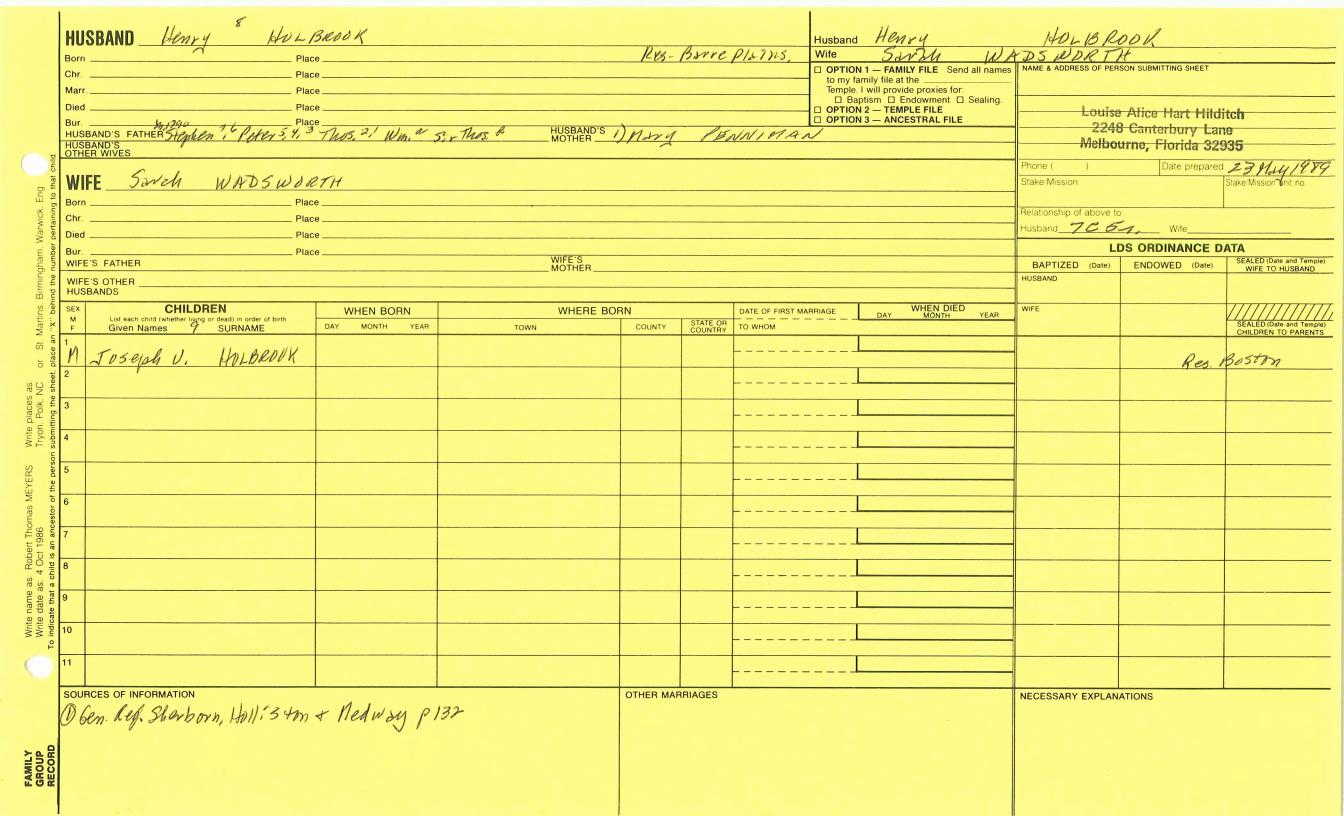 HUSBAND Henry 8 HOLBROOK
Born Place Res- Barre Plains,
Chr. Place
Marr. Place
Died Place
Bur. Place
HUSBAND'S FATHER Stephen 7,6 Peter 5,4,3 Thos. 2,1 Wm. Sr. Thos. HUSBAND'S MOTHER 1) Mary PENNIMAN
HUSBAND'S OTHER WIVES
Husband Henry HOLBROOK
Wife Sarah WADSWORTH
☐ OPTION 1 — FAMILY FILE Send all names
to my family file at the
Temple. I will provide proxies for:
☐ Baptism ☐ Endowment ☐ Sealing.
☐ OPTION 2 — TEMPLE FILE
☐ OPTION 3 — ANCESTRAL FILE
NAME & ADDRESS OF PERSON SUBMITTING SHEET
Louise Alice Hart Hilditch
2248 Canterbury Lane
Melbourne, Florida 32935
Phone ( ) Date prepared 23 May 1989
Stake Mission Stake Mission unit no.
Relationship of above to
Husband 7C 6r. Wife
WIFE Sarah WADSWORTH
Born Place
Chr. Place
Died Place
Bur. Place
WIFE'S FATHER WIFE'S MOTHER
WIFE'S OTHER HUSBANDS
LDS ORDINANCE DATA
BAPTIZED (Date) ENDOWED (Date) SEALED (Date and Temple) WIFE TO HUSBAND
HUSBAND
WIFE
SEALED (Date and Temple) CHILDREN TO PARENTS
SEX M F
CHILDREN
List each child (whether living or dead) in order of birth
Given Names 9 SURNAME
WHEN BORN
DAY MONTH YEAR
WHERE BORN
TOWN COUNTY STATE OR COUNTRY
DATE OF FIRST MARRIAGE
TO WHOM
WHEN DIED
DAY MONTH YEAR
1 M Joseph U. HOLBROOK Res. Boston
2
3
4
5
6
7
8
9
10
11
SOURCES OF INFORMATION
① Gen. Ref. Sherborn, Holliston & Medway p 132
OTHER MARRIAGES
NECESSARY EXPLANATIONS
Write name as: Robert Thomas MEYERS Write places as: Tryon, Polk, NC or St Martins, Birmingham, Warwick, Eng
Write date as: 4 Oct 1986
To indicate that a child is an ancestor of the person submitting the sheet, place an "X" behind the number pertaining to that child
FAMILY GROUP RECORD